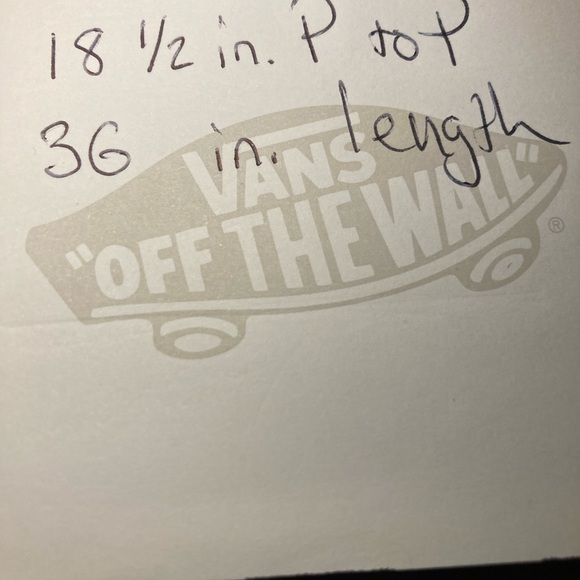 18 1/2 in. P to P
36 in. length
VANS
"OFF THE WALL"
®